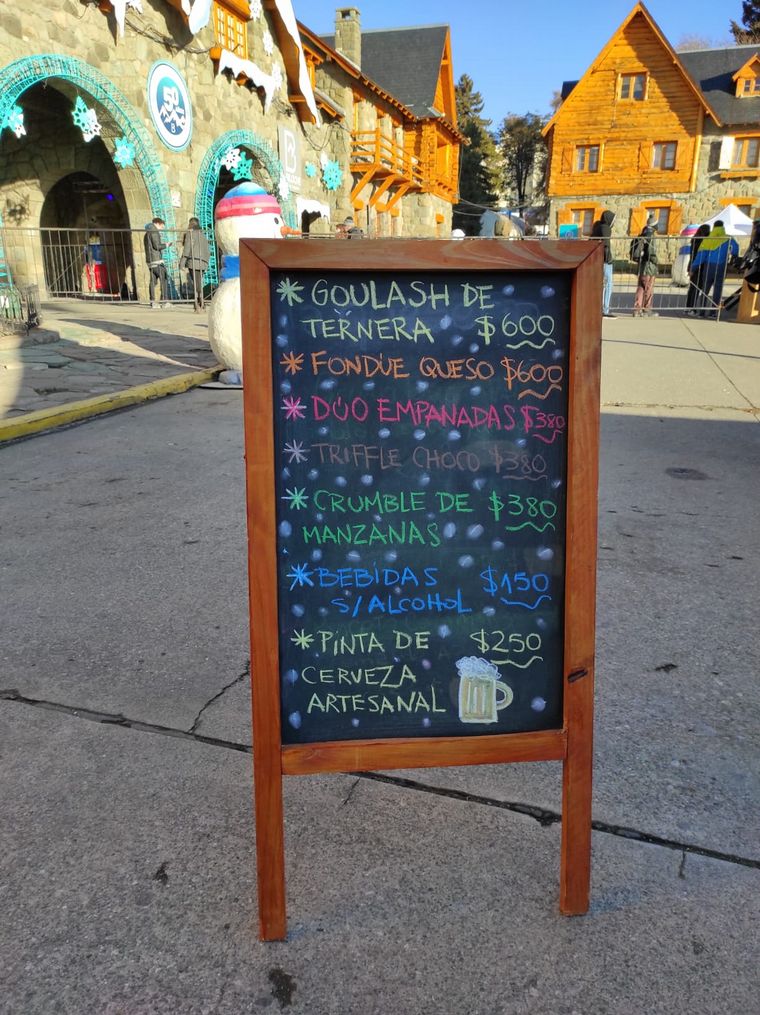 50
B
B
* GOULASH DE
TERNERA $600
* FONDUE QUESO $600
* DÚO EMPANADAS $380
* TRIFFLE CHOCO $380
* CRUMBLE DE $380
MANZANAS
* BEBIDAS $150
S/ALCOHOL
* PINTA DE $250
CERVEZA
ARTESANAL